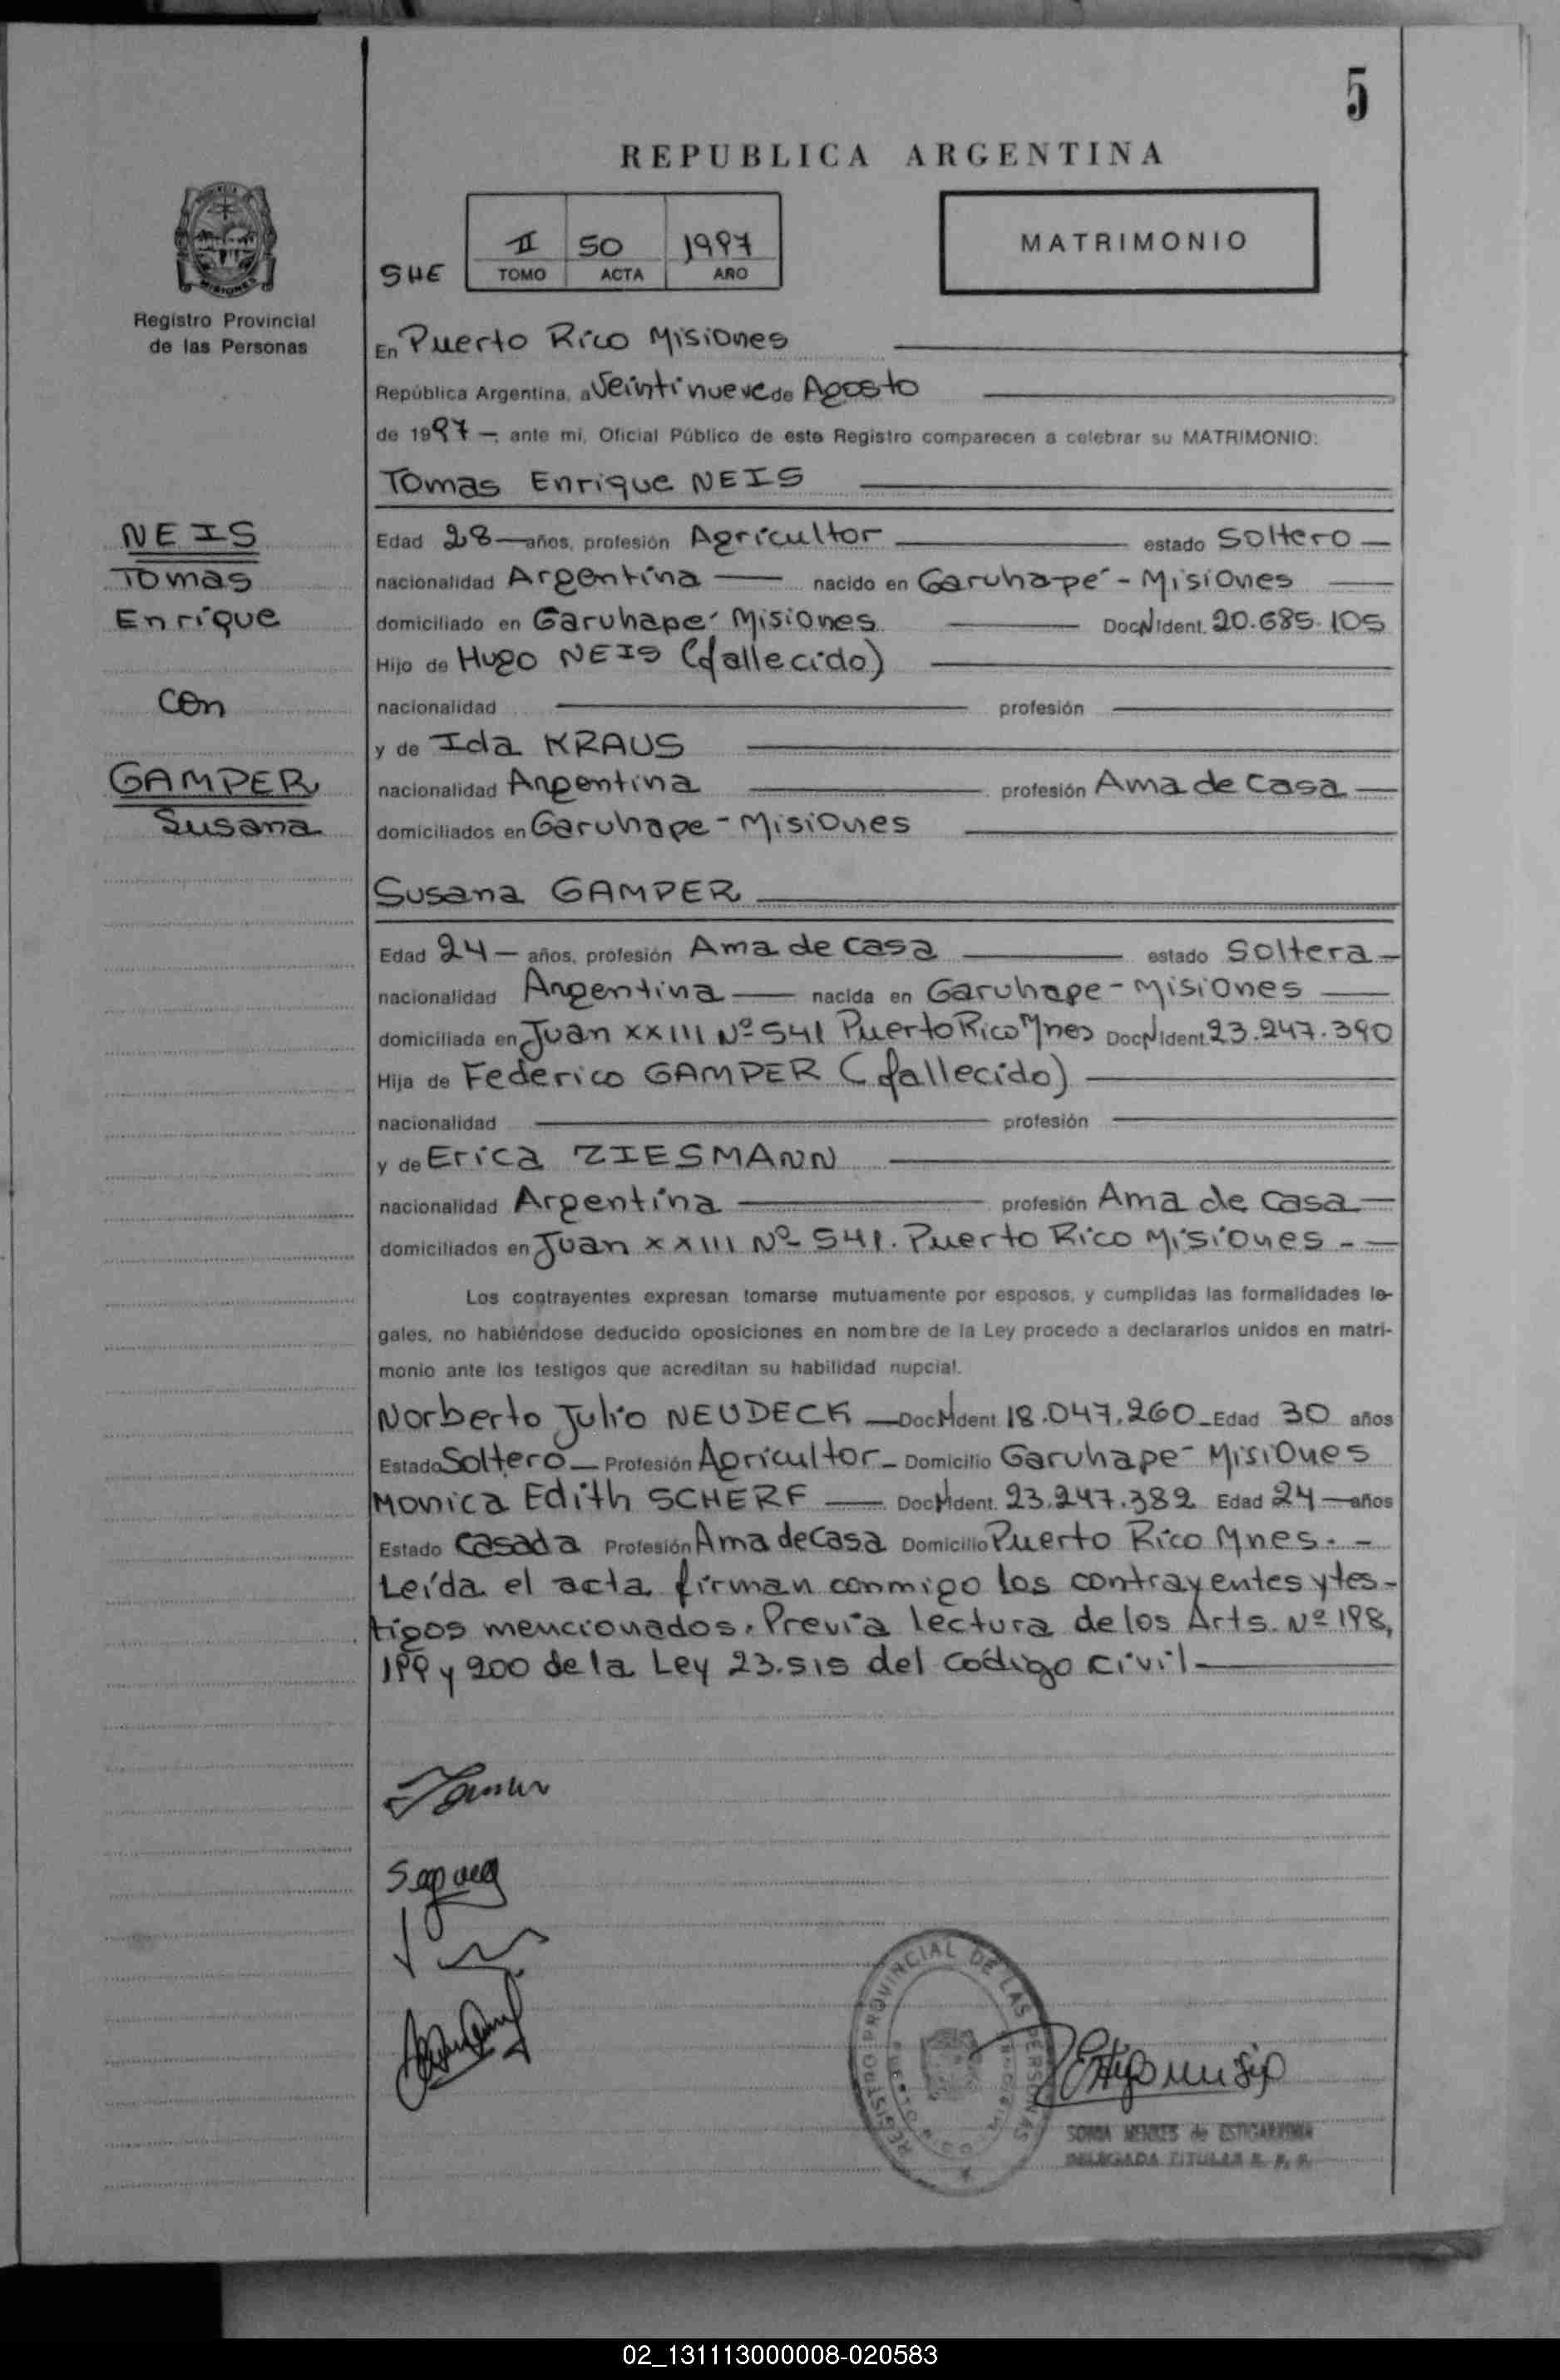 5
REPUBLICA ARGENTINA
Registro Provincial
de las Personas
SHE
II 50 1997
TOMO ACTA AÑO
MATRIMONIO
En Puerto Rico Misiones
República Argentina, a Veintinueve de Agosto
de 1997 - ante mí, Oficial Público de este Registro comparecen a celebrar su MATRIMONIO:
Tomas Enrique NEIS
NEIS
Tomas
Enrique
con
GAMPER
Susana
Edad 28 años, profesión Agricultor estado Soltero
nacionalidad Argentina nacido en Garuhapé - Misiones
domiciliado en Garuhape - Misiones DocNIdent. 20.685.105
Hijo de Hugo NEIS (fallecido)
nacionalidad profesión
y de Ida KRAUS
nacionalidad Argentina profesión Ama de Casa
domiciliados en Garuhape - Misiones
Susana GAMPER
Edad 24 años, profesión Ama de casa estado Soltera
nacionalidad Argentina nacida en Garuhape - Misiones
domiciliada en Juan XXIII Nº 541 Puerto Rico Mnes DocNIdent. 23.247.390
Hija de Federico GAMPER (fallecido)
nacionalidad profesión
y de Erica ZIESMANN
nacionalidad Argentina profesión Ama de casa
domiciliados en Juan XXIII Nº 541. Puerto Rico Misiones -
Los contrayentes expresan tomarse mutuamente por esposos, y cumplidas las formalidades le-
gales, no habiéndose deducido oposiciones en nombre de la Ley procedo a declararlos unidos en matri-
monio ante los testigos que acreditan su habilidad nupcial.
Norberto Julio NEUDECK DocNIdent. 18.047.260 Edad 30 años
Estado Soltero Profesión Agricultor Domicilio Garuhape - Misiones
Monica Edith SCHERF DocNIdent. 23.247.382 Edad 24 años
Estado Casada Profesión Ama de Casa Domicilio Puerto Rico Mnes. -
Leída el acta firman conmigo los contrayentes y tes-
tigos mencionados. Previa lectura de los Arts. Nº 198,
199 y 200 de la Ley 23.515 del codigo civil
REGISTRO PROVINCIAL DE LAS PERSONAS
DELEGADA TITULAR R. P. P.
02_131113000008-020583